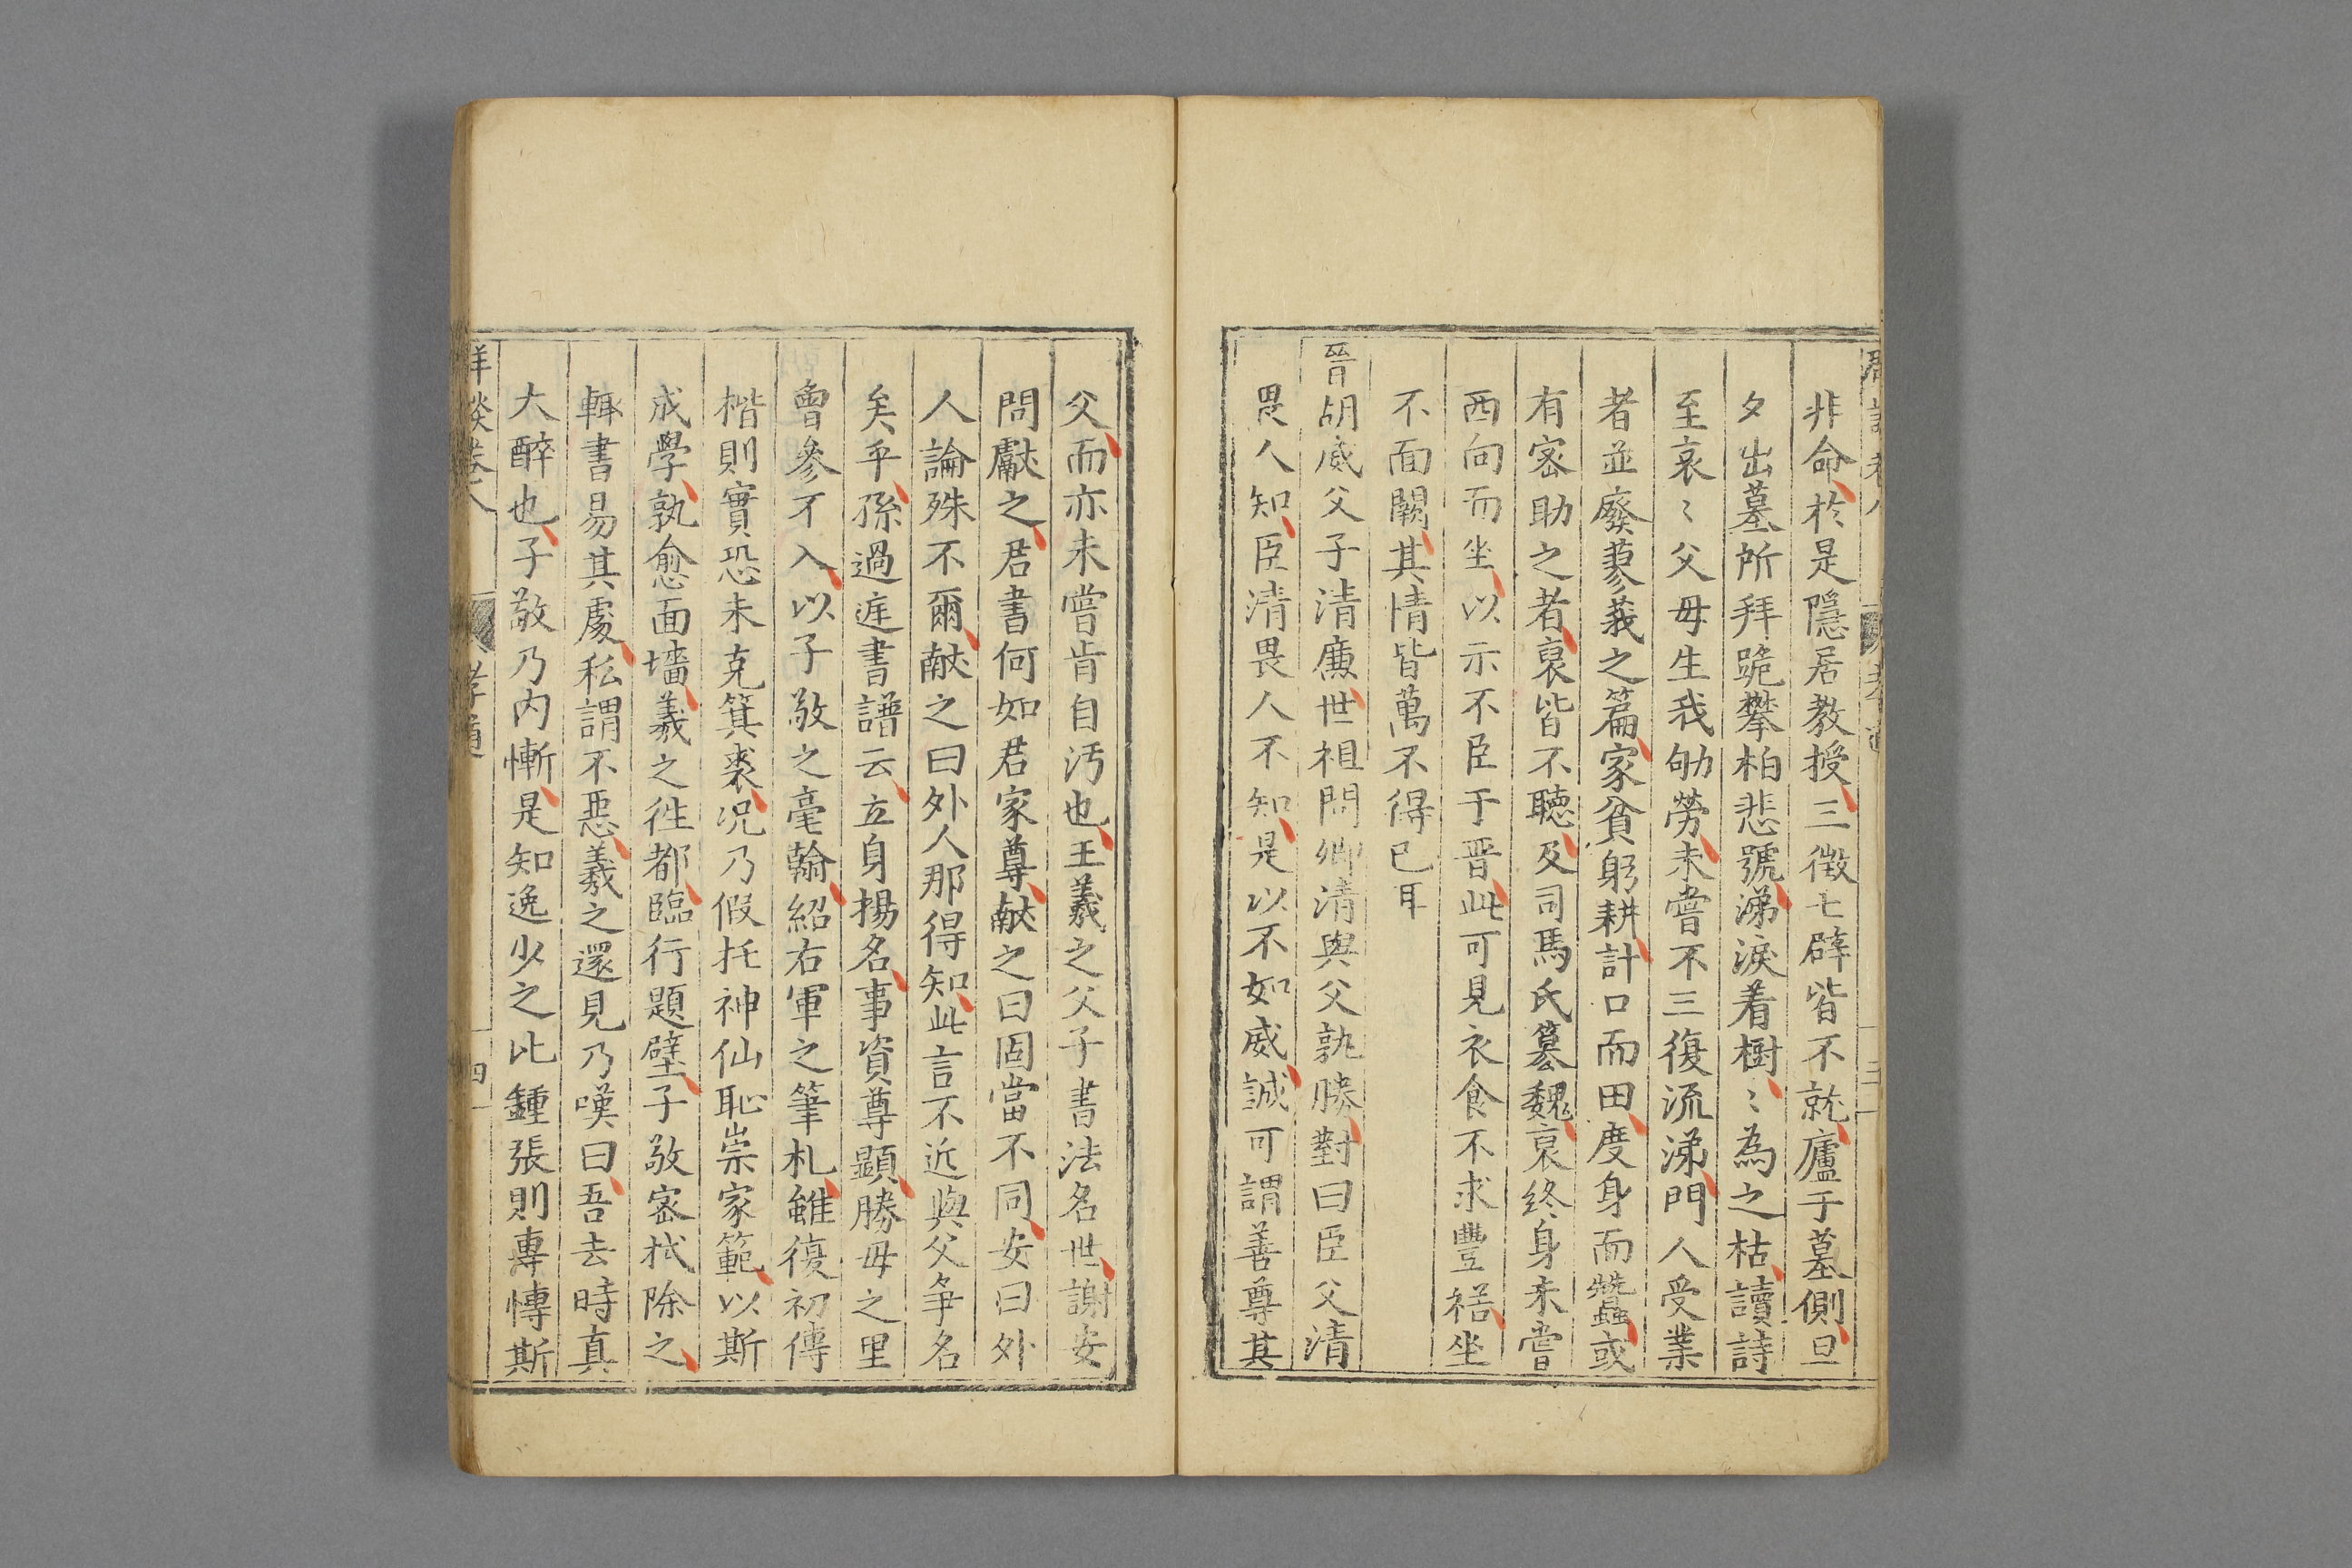 非命於是隱居教授三徴七辟皆不就廬于墓側旦
夕出墓所拜跪攀柏悲號涕淚着樹〻為之枯讀詩
至哀〻父毋生我劬勞未嘗不三復流涕門人受業
者並廢蓼莪之篇家貧躬耕計口而田度身而蠶或
有密助之者裒皆不聽及司馬氏簒魏裒終身未嘗
西向而坐以示不臣于晋此可見衣食不求豐褚坐
不面闕其情皆萬不得已耳
晉胡威父子清廉世祖問卿清與父孰勝對曰臣父清
畏人知臣清畏人不知是以不如威誠可謂善尊其
父而亦未嘗肯自汚也王羲之父子書法名世謝安
問獻之君書何如君家尊献之曰固當不同安曰外
人論殊不爾献之曰外人那得知此言不近與父争名
矣乎孫過庭書譜云立身揚名事資尊顯勝毋之里
曾參不入以子敬之毫翰紹右軍之筆札雖復初傳
楷則實恐未克箕裘况乃假托神仙恥崇家範以斯
成學孰愈面墻羲之徃都臨行題壁子敬密拭除之
輙書易其處私謂不惡羲之還見乃嘆曰吾去時真
大醉也子敬乃内慚是知逸少之比鍾張則專慱斯
卷八
四